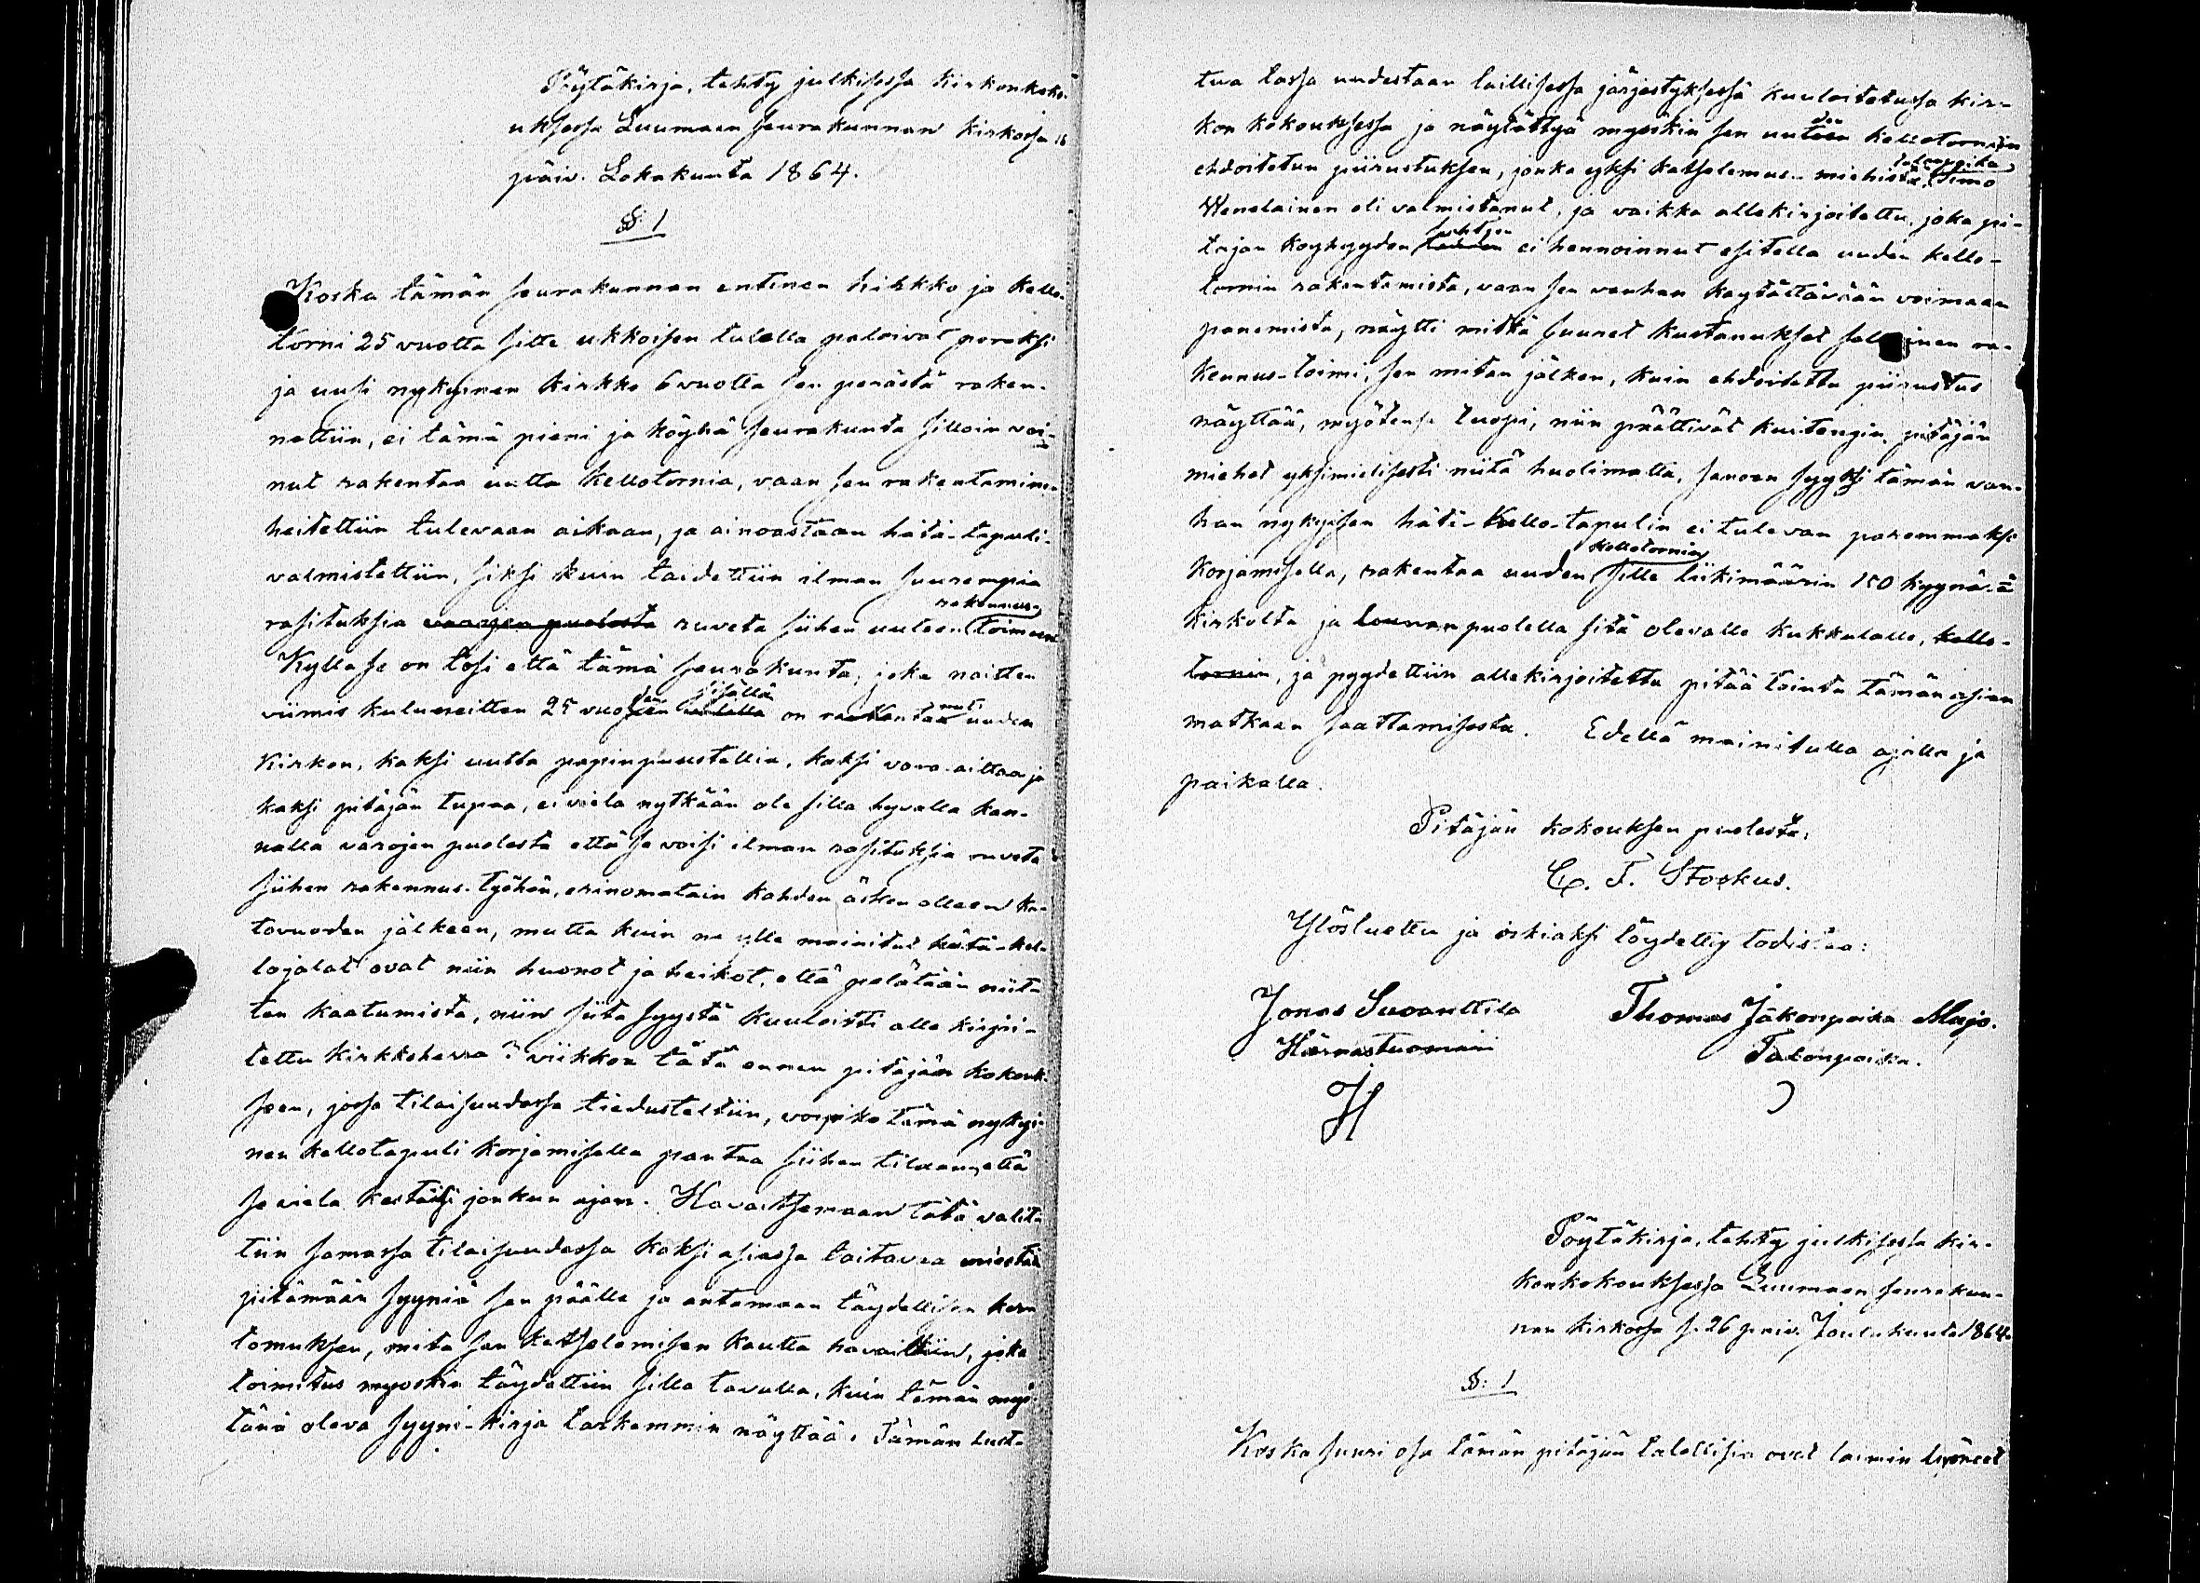 Pöytäkirja, tehty julkisessa Kirkonkoko-
uksessa Luumäen seurakunnan Kirkossa 16
päiv. Lokakuuta 1864.
§: 1
Koska tämän seurakunnan entinen Kirkko ja Kello-
torni 25 vuotta sitte ukkoisen tulella paloivat poroksi
ja uusi nykyinen Kirkko 6 vuotta sen perästä raken-
nettiin, ei tämä pieni ja köyhä seurakunta silloin voi-
nut rakentaa uutta Kellotornia, vaan sen rakentamine-
heitettiin tulevaan aikaan, ja ainoastaan hätä-tapuli-
valmistettiin, siksi kuin taidettiin ilman suurempia
rasituksia varojen puolesta ruveta siihen uuteen rakennus- toimeen
Kylla se on tosi että tämä seurakunta, joka naitten
viimis kuluneitten 25 vuoden sisällä on rakentanut uuden
Kirkon, kaksi uutta papinpuustellia, kaksi vara-aittaa ja
kaksi pitäjän tupaa, ei vielä nytkään ole sillä hyvällä kan-
nalla varojen puolesta että se voisi ilman rasituksia ruveta
siihen rakennus-työhön, erinomatain kahden äsken olleen ka-
tovuoden jälkeen, mutta kuin ne ylle mainitut hätä-kel-
lojalat ovat niin huonot ja heikot, että pelätään niit-
ten kaatumista, niin siitä syystä Kuuloisti alle kirjoi-
tettu Kirkkoherra 3 viikkoa tätä ennen pitäjän kokouk-
seen, jossa tilaisuudessa tiedusteltiin, voipiko tämä nykyi-
nen kellotapuli korjamisella pantaa siihen tilaan, että
se vielä kestäisi jonkun ajan. Havaitsemaan tätä valit-
tiin samassa tilaisuudessa kaksi asiassa taitavaa miestä
pitämään syyniä sen päälle ja antamaan täydellisen ker-
tomuksen, mitä sen katselemisen kautta havaittiin, joka
toimitus myöskin täydettiin sillä tavalla, kuin tämän myö-
tänä oleva syyni-kirja tarkemmin näyttää. Tämän luet-
tua tässä uudestaan laillisessa järjestyksessä kuuloitetussa kir-
kon kokouksessa ja näytättyä myöskin sen uuden Kellotornin
ehdoitetun piirustuksen, jonka yksi katselemus-miehistä, talonpoika Simo
Wenelainen oli valmistanut, ja vaikka allekirjoitettu, joka pi-
täjän köyhyyden suhteen ei hennoinnut esitellä uuden kello-
tornin rakentamista, vaan sen vanhan käytättävään voimaan
panemista, näytti mitkä suuret kustanukset sellainen ra-
kennus-toimi, sen mitan jälken, kuin ehdoitettu piirustus
näyttää, myötensä tuopi, niin päättivät kuitengin pitäjän
miehet yksimielisesti niitä huolimatta, sanoen syyksi tämän van-
han nykyisen hätä-Kello-tapulin ei tulevan paremmaksi
korjamisella, rakentaa uuden kellotornin sille liikimäärin 150 kyynärää
kirkolta ja lounan puolella sitä olevalle kukkulalle, kello-
tornin, ja pyydettiin allekirjoitettu pitää tointa tämän asian
matkaan saattamisesta. Edellä mainitulla ajalla ja
paikalla.
Pitäjän kokouksen puolesta,
C. F. Stockus.
Ylösluettu ja oikiaksi löydetty todistaa:
Jonas Suvanttila Thomas Jakonpoika Majo.
Härrastuomari Talonpoika.
H
Pöytäkirja, tehty julkisessa kir-
konkokouksessa Luumäen seurakun-
nan kirkossa s. 26 päiv. Joulukuuta 1864.
§: 1
Koska suuri osa tämän pitäjän talollisia ovat laimin lyöneet